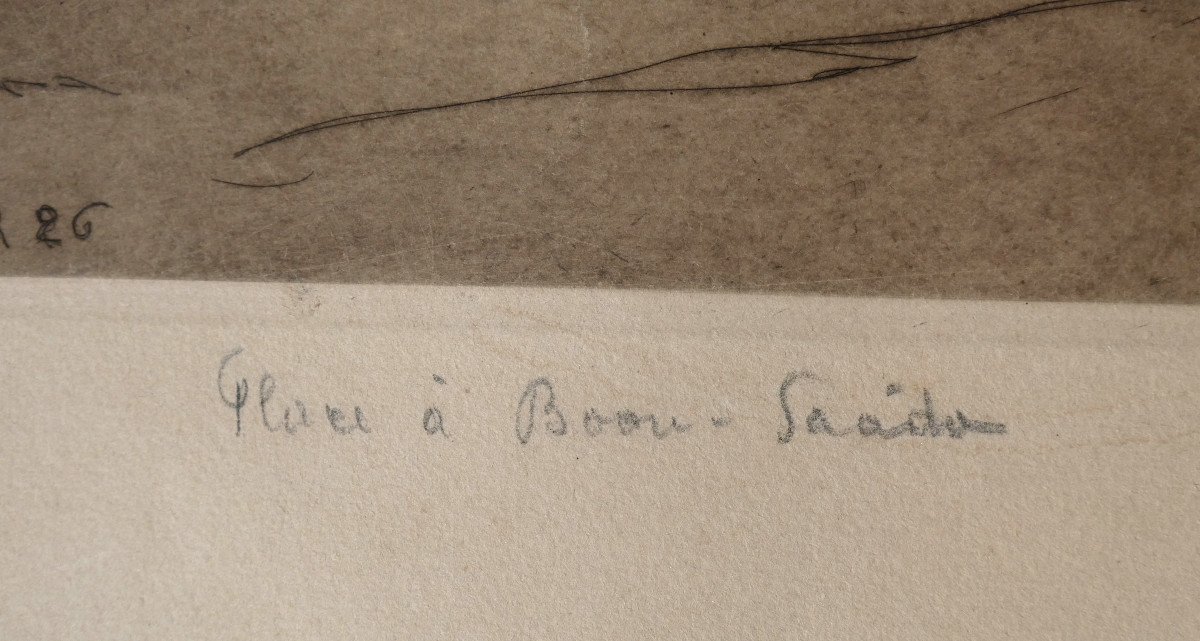 26
Place àBoou-Saâda